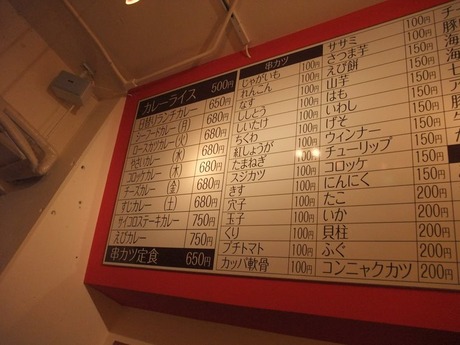 カレーライス 500円
日替りランチカレー 650円
シーフードカレー (月) 680円
ロースカツカレー (火) 680円
やさいカレー (水) 680円
コロッケカレー (木) 680円
チーズカレー (金) 680円
すじカレー (土) 680円
サイコロステーキカレー 750円
えびカレー 750円
串カツ定食 650円
串カツ
じゃがいも 100円
れんこん 100円
なす 100円
ししとう 100円
しいたけ 100円
ちくわ 100円
紅しょうが 100円
たまねぎ 100円
スジカツ 100円
きす 100円
穴子 100円
玉子 100円
くり 100円
プチトマト 100円
カッパ軟骨 100円
ササミ 100円
さつま芋 100円
えび餅 100円
山芋 100円
はも 150円
いわし 150円
げそ 150円
ウィンナー 150円
チューリップ 150円
コロッケ 150円
にんにく 150円
たこ 200円
いか 200円
貝柱 200円
ふぐ 200円
コンニャクカツ 200円